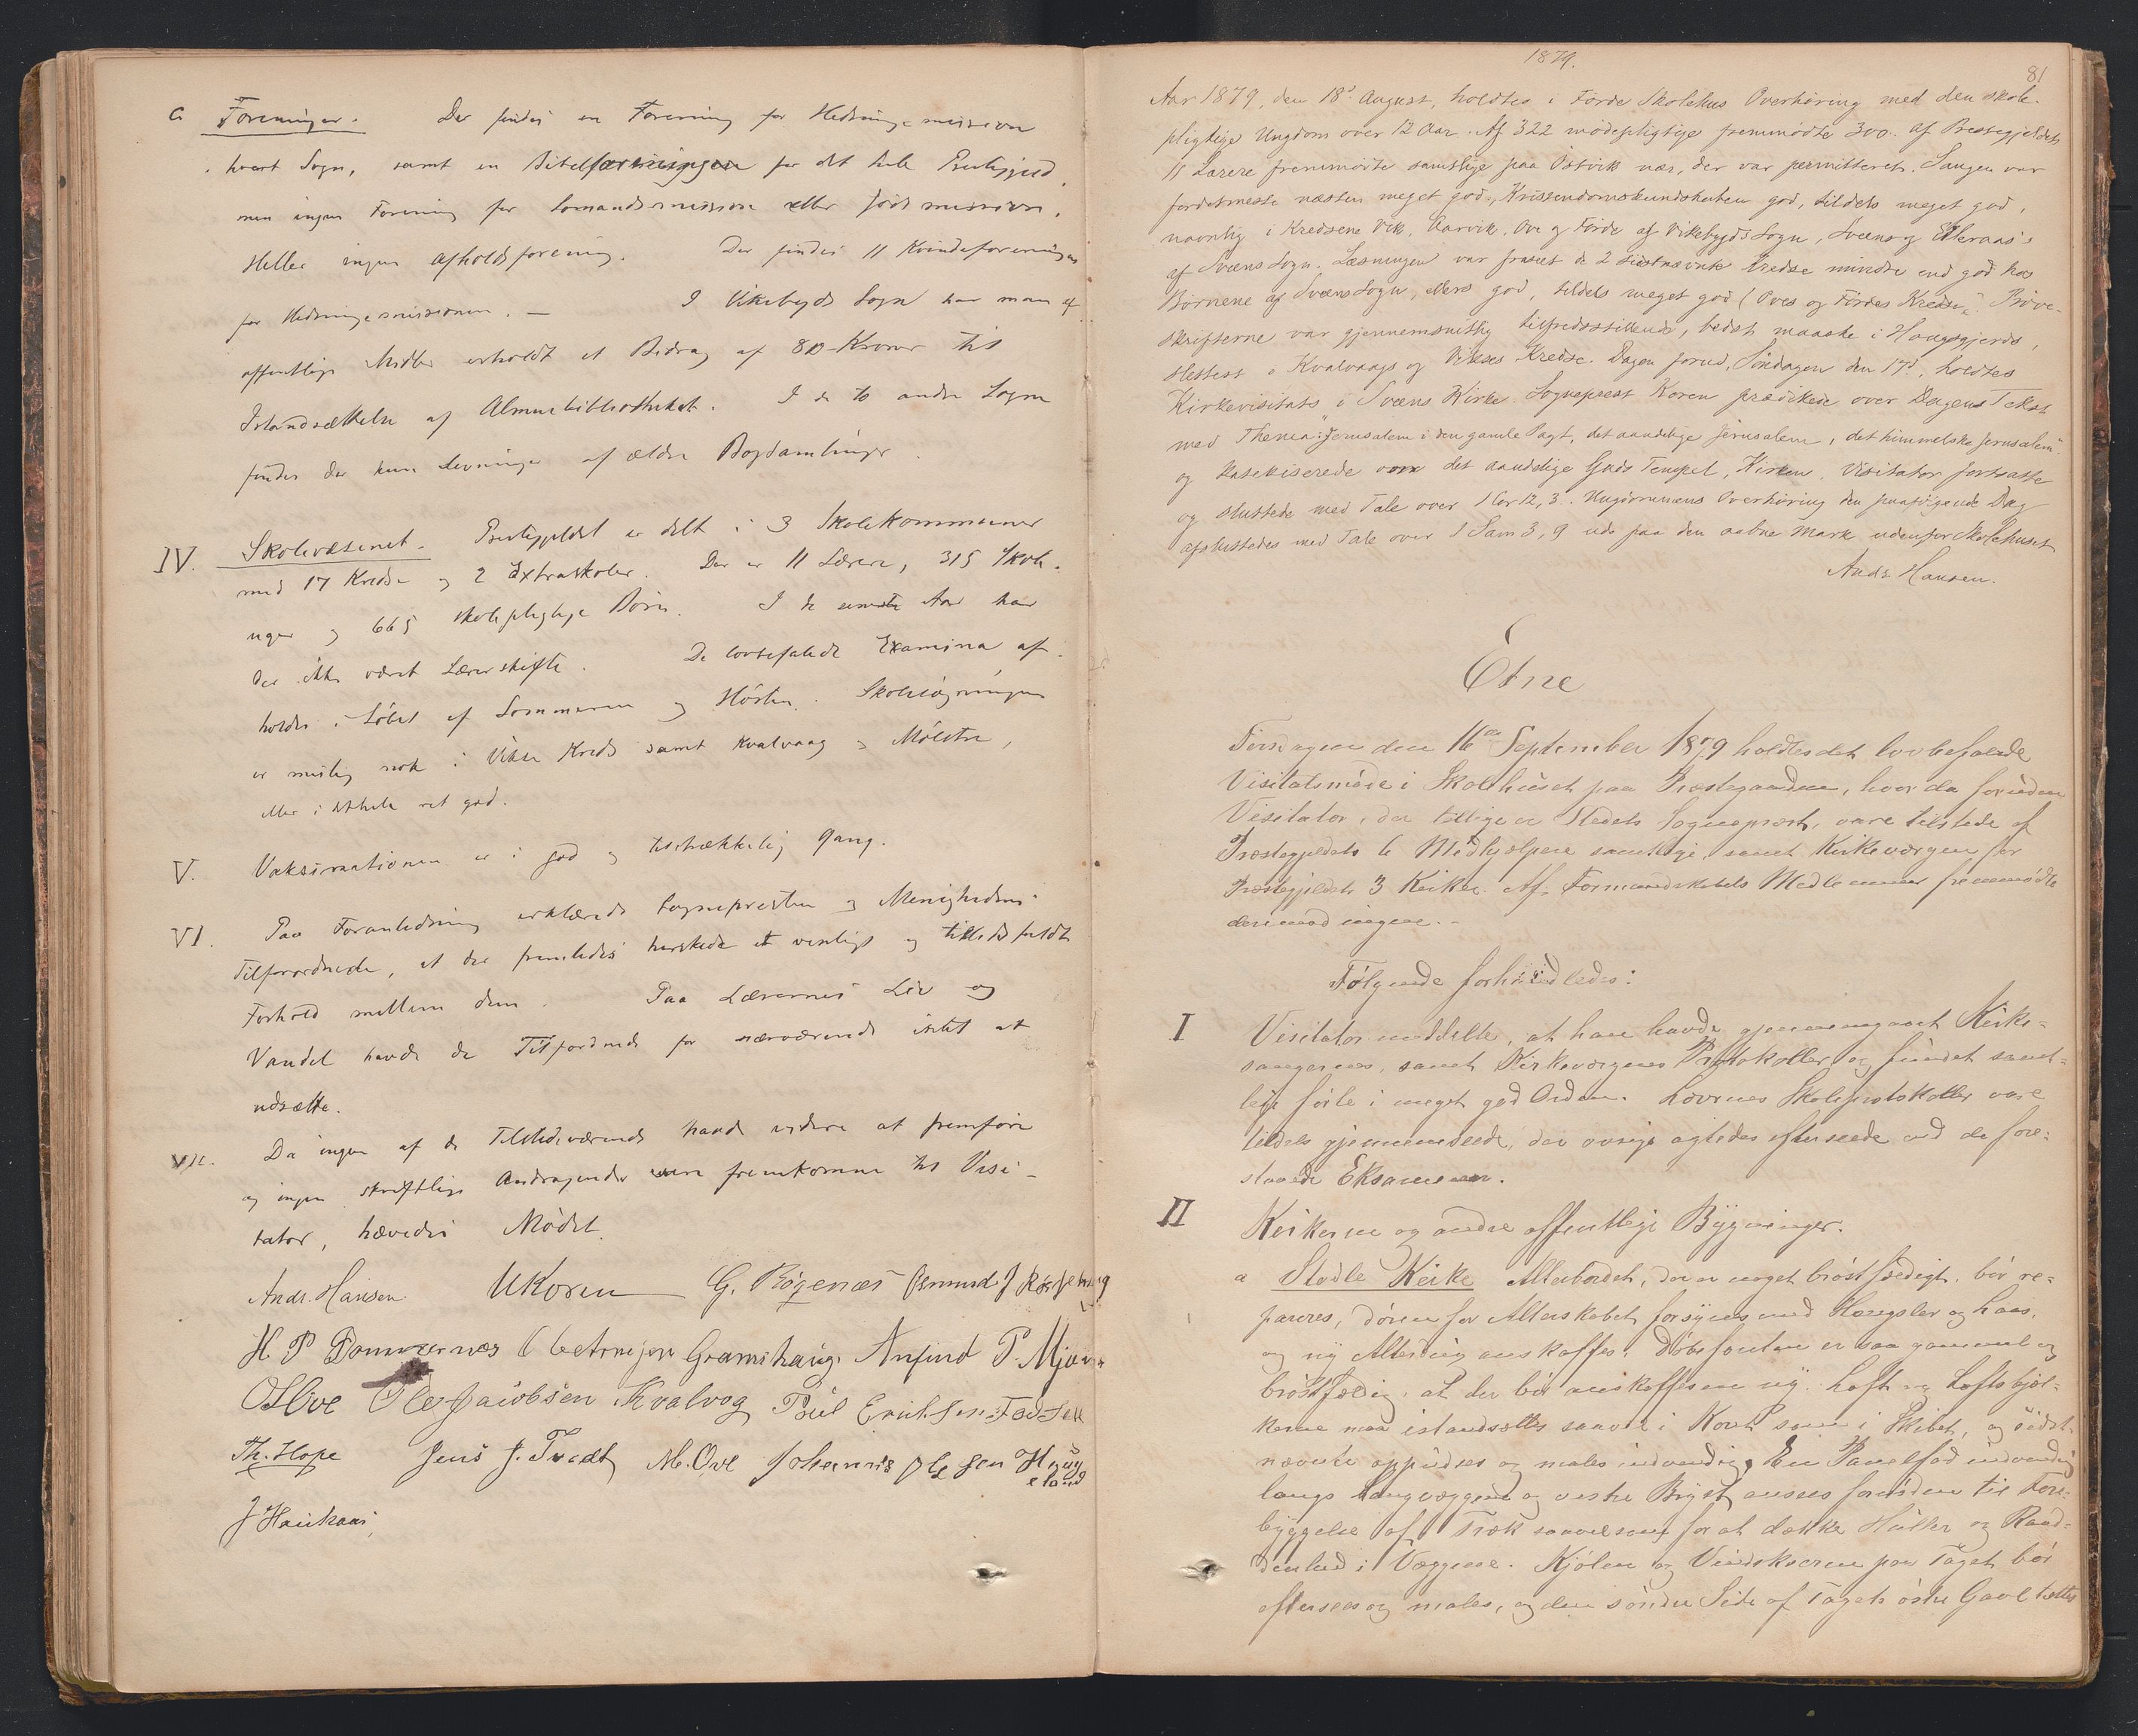 c Foreninger. Der findes en Forening for Hedningemissionen
hvert Sogn, samt en Bibelforeningen for det hele Prestegjeld
men ingen Forening for Sømandsmissionen eller Jødemissionen.
Heller ingen Afholdsforening. Der findes 11 Kvindeforeninger
for Hedningemissionen. — I Vikebygds Sogn har man af
offentlige Midler erholdt et Bidrag af 80 Kroner til
Istandsættelse af Almuebibliotheket. I de to andre Sogne
findes der kun Levninger af ældre Bogsamlinger.
IV. Skolevæsenet. Prestegjeldet er delt i 3 Skolekommuner
med 17 Kredse og 2 Extraskoler. Der er 11 Lærere, 315 Skole-
uger og 665 skolepligtige Børn. I de seneste Aar har
der ikke været Lærerskifte. De lovbefalede Examina af-
holdes i Løbet af Sommeren og Høsten. Skolesøgningen
er mislig nok i Vikse Kreds samt Kvalvaag og Mølstre,
ellers i det hele ret god.
V. Vaksinationen er i god og tilstrækkelig Gang.
VI. Paa Foranledning erklærede Sognepresten og Menighedens
Tilforordnede, at der fremdeles herskede et venligt og tillidsfuldt
Forhold mellem dem. Paa Lærernes Liv og
Vandel havde de Tilforordnede for nærværende intet at
udsætte.
VII. Da ingen af de Tilstedeværende havde videre at fremføre
og ingen skriftlige Andragender vare fremkomne til Visi-
tator, hævedes Mødet.
Andr. Hansen UKoren G. Bøgenæs Asmund J
H P Dommersnes Gramshaug Anfind P. Mjavn
O Hove Ole Jacobsen Kvalvog Poul Eriksen
Th. Hope Jens J. Tvedt M. Ove Johannes Olsen Haug
eland
J Haukaas
1879.
81
Aar 1879, den 18d August, holdtes i Førde Skolehus Overhøring med den skole-
pligtige Ungdom over 12 Aar. Af 322 mødepligtige fremmødte 300. af Prestegjeldets
11 Lærere fremmødte samtlige paa Østvik nær, der var permitteret. Sangen var
fordetmeste næsten meget god, Kristendomskundskaben god, tildels meget god,
navnlig i Kredsene Vik, Aarvik, Ove og Førde af Vikebygds Sogn, Sveens og Elleraas's
af Sveens Sogn. Læsningen var fraseet de 2 sidstnævnte Kredse mindre end god hos
Børnene af Sveens Sogn, ellers god, tildels meget god (Oves og Førdes Kredse). Prøve-
skrifterne var gjennemsnitlig tilfredsstillende, bedst maaske i Haugsgjerds,
slettest i Kvalvaags og Vikses Kredse. Dagen forud, Søndagen den 17d, holdtes
Kirkevisitats i Sveens Kirke. Sogneprest Koren prædikede over Dagens Tekst
med Thema: Jerusalem i den gamle Pagt, det aandelige Jerusalem, det himmelske Jerusalem"
og katekiserede om det aandelige Guds Tempel, Kirken. Visitator fortsatte
og sluttede med Tale over 1 Cor 12, 3. Ungdommens Overhøring den paafølgende Dag
afsluttedes med Tale over 1 Sam 3, 9 ude paa den aabne Mark udenfor Skolehuset
Andr Hansen.
Etne
Tirsdagen den 16de September 1879 holdtes det lovbefalede
Visitatsmøde i Skolehuset paa Præstegaarden, hvor da foruden
Visitator, der tillige er Stedets Sogneprest, vare tilstede af
Præstegjeldets 6 Medhjælpere samtlige, samt Kirkeværgen for
Præstegjeldets 3 Kirker. Af Formandskabets Medlemmer fremmødte
derimod ingen.-
Følgende forhandledes:
I Visitator meddelte, at han havde gjennemgaaet Kirke-
sangernes, samt Kirkeværgens Protokoller og fundet samt-
lige førte i meget god Orden. Lærernes Skoleprotokoller vare
tildels gjennemseede, de øvrige agtedes efterseede ved de fore-
staaende Eksamener.
II Kirkerne og andre offentlige Bygninger.
a Stødle Kirke Alterbordet, der er noget brøstfældigt, bør re-
pareres, døren for Alterskabet forsynes med Hængsler og Laas,
og ny Alterdug anskaffes. Døbefonten er saa gammel og
brøstfældig, at der bør anskaffes en ny. Loft og Loftsbjæl-
kerne maa istandsættes saavel i Koret som i Skibet, og sidst-
nævnte oppudses og males indvendig. En Panelfod indvendig
langs Langvæggene og vestre Bryst ansees fornøden til Fore-
byggelse af Træk saavelsom for at dække Huller og Raad-
denhed i Væggene. Kjølen og Vindskierne paa Taget bør
efterseesog males, og den søndre Side af Tagets østre Gavl tættes